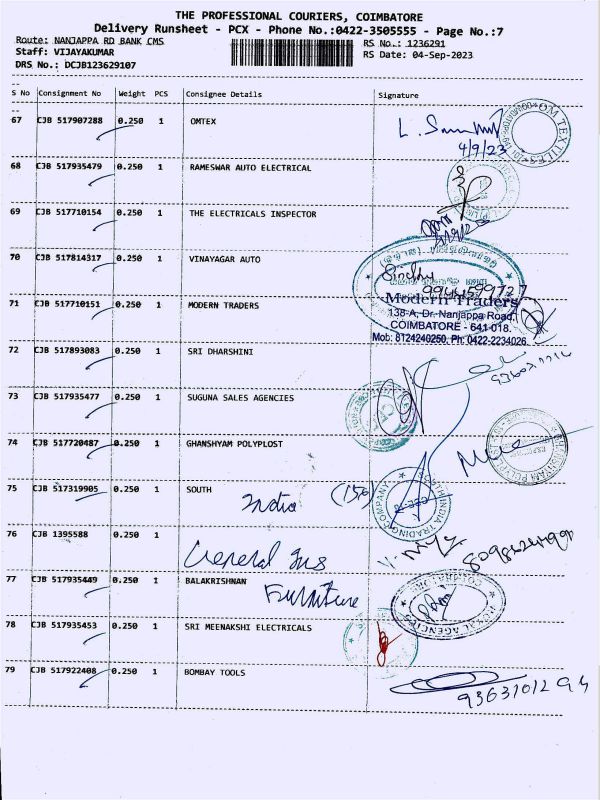 THE PROFESSIONAL COURIERS, COIMBATORE
Delivery Runsheet - PCX - Phone No.:0422-3505555 - Page No.:7
Route: NANJAPPA RD BANK CMS
RS No.: 1236291
Staff: VIJAYAKUMAR
RS Date: 04-Sep-2023
DRS No.: DCJB123629107
S No Consignment No Weight PCS Consignee Details Signature
67 CJB 517907288 0.250 1 OMTEX
4/9/23
68 CJB 517935479 0.250 1 RAMESWAR AUTO ELECTRICAL
69 CJB 517710154 0.250 1 THE ELECTRICALS INSPECTOR
70 CJB 517814317 0.250 1 VINAYAGAR AUTO
71 CJB 517710151 0.250 1 MODERN TRADERS
Modern Traders
138-A, Dr. Nanjappa Road,
COIMBATORE - 641 018.
Mob: 8124240250, Ph: 0422-2234026
72 CJB 517893083 0.250 1 SRI DHARSHINI
73 CJB 517935477 0.250 1 SUGUNA SALES AGENCIES
74 CJB 517720487 0.250 1 GHANSHYAM POLYPLOST
75 CJB 517319905 0.250 1 SOUTH
India (156)
SOUTH INDIA TRADING COMPANY
76 CJB 1395588 0.250 1
General Ins
77 CJB 517935449 0.250 1 BALAKRISHNAN
Furniture
78 CJB 517935453 0.250 1 SRI MEENAKSHI ELECTRICALS
79 CJB 517922408 0.250 1 BOMBAY TOOLS